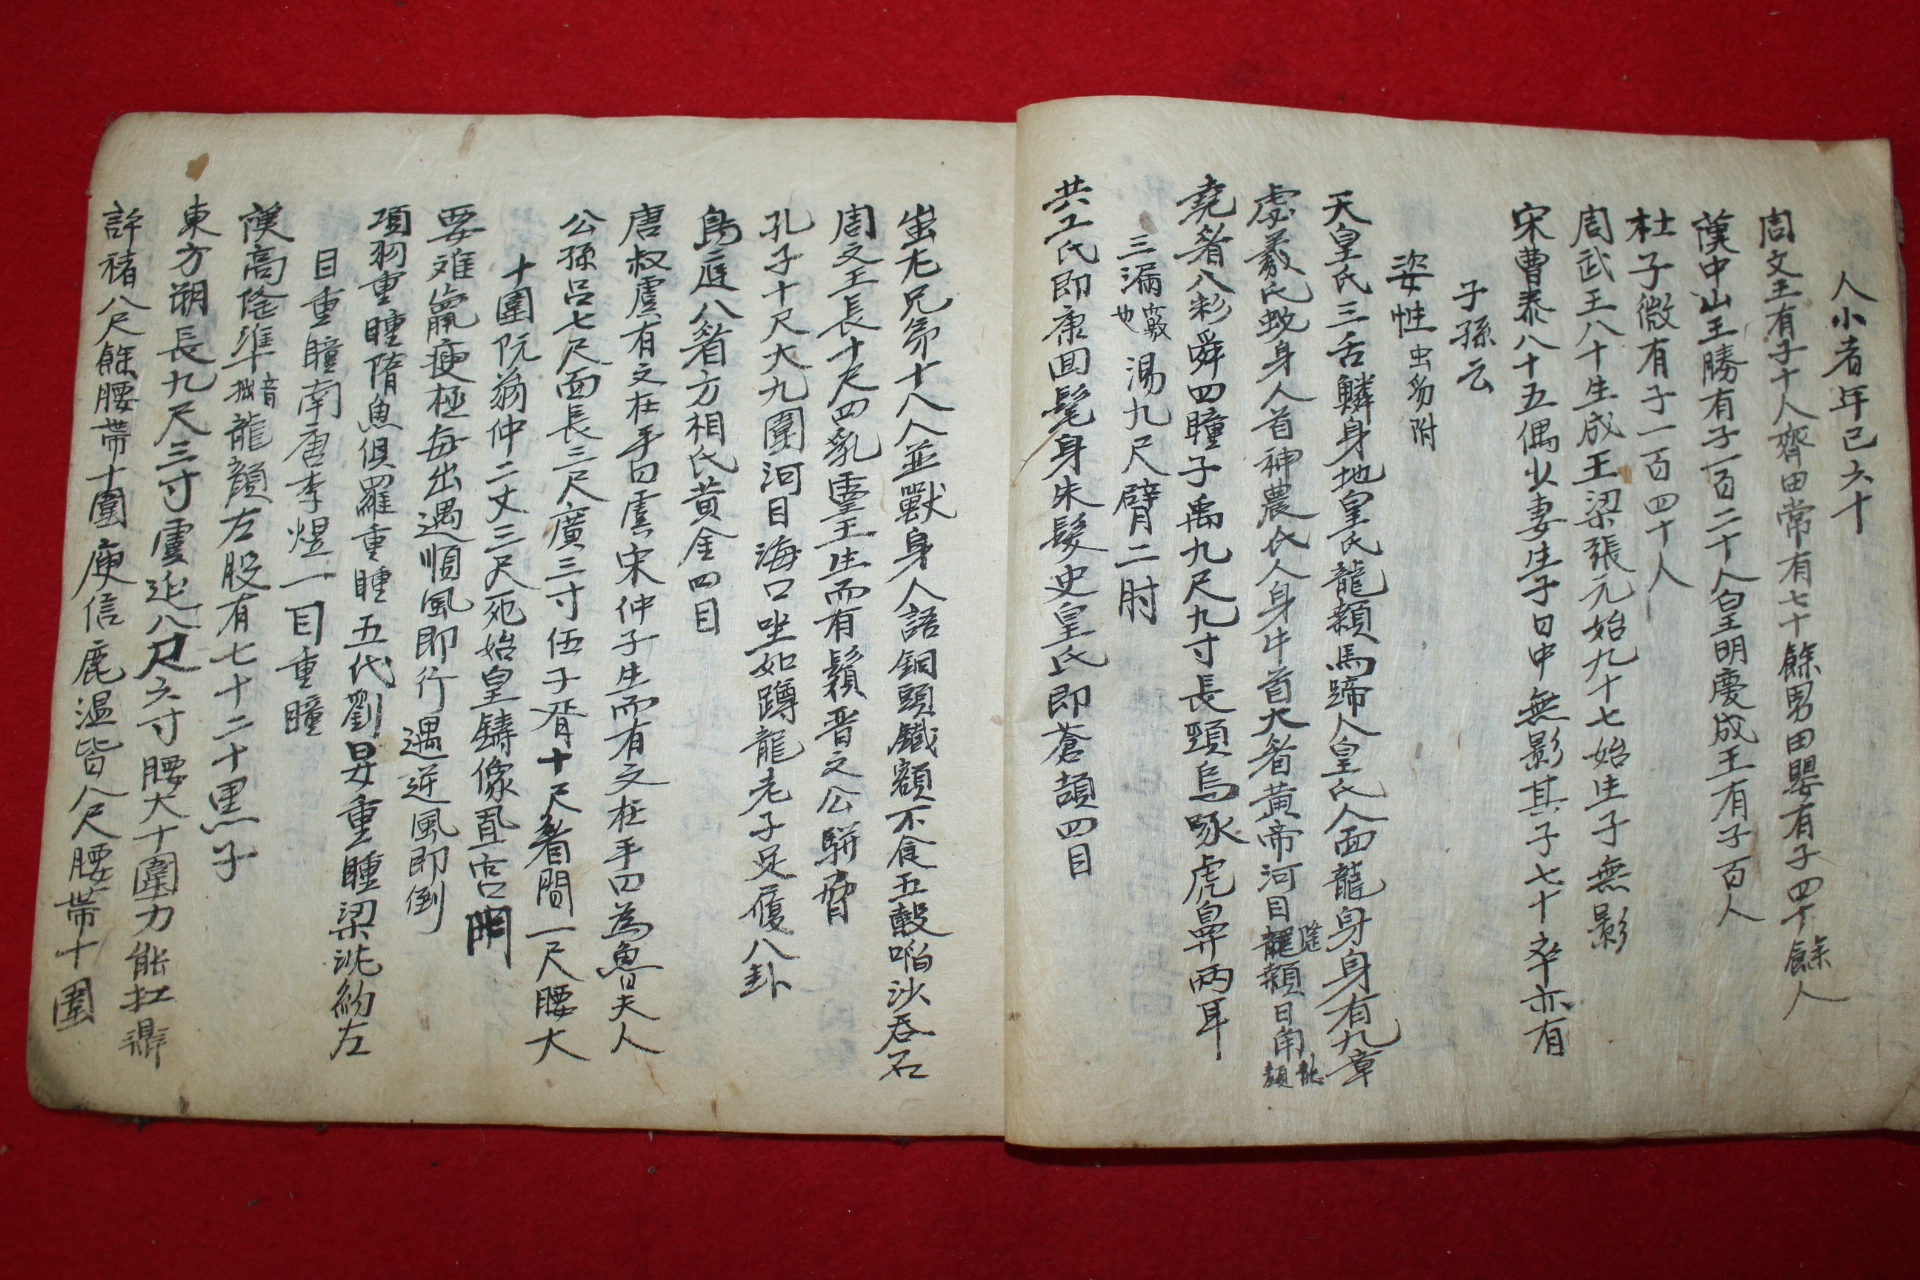 人小者年已六十
周文王有子十人齊田常有七十餘男田嬰有子四十餘人
漢中山王勝有子一百二十人皇明慶成王有子百人
杜子微有子一百四十人
周武王八十生成王梁張元始九十七始生子無影
宋曹泰八十五偶少妻生子日中無影其子七十卒亦有
子孫云
姿性虫豸附
天皇氏三舌鱗身地皇氏龍顙馬蹄人皇氏人面龍身身有九章
虙羲氏蛇身人首神農氏人身牛首大眉黃帝河目隆顙日角龍顏
堯眉八彩舜四瞳子禹九尺九寸長頸烏喙虎鼻兩耳
三漏竅也湯九尺臂二肘
共工氏即康回髦身朱髮史皇氏即蒼頡四目
蚩尤兄弟十八人並獸身人語銅頭鐵額不食五穀啗沙吞石
周文王長十尺四乳靈王生而有鬚晋文公騈脅
孔子十尺大九圍河目海口坐如蹲龍老子足履八卦
鳥庭八眉方相氏黃金四目
唐叔虞有文在手曰虞宋仲子生而有文在手曰為魯夫人
公孫呂七尺面長三尺廣三寸伍子胥十尺眉間一尺腰大
十圍阮翁仲二丈三尺死始皇鑄像置宮門
要难羸瘦極每出遇順風即行遇逆風即倒
項羽重瞳隋魚俱羅重瞳五代劉旻重瞳梁沈約左
目重瞳南唐李煜一目重瞳
漢高隆準音拙龍顔左股有七十二十黑子
東方朔長九尺三寸虞延八尺六寸腰大十圍力能扛鼎
許褚八尺餘腰帶十圍庾信鹿温皆八尺腰帶十圍